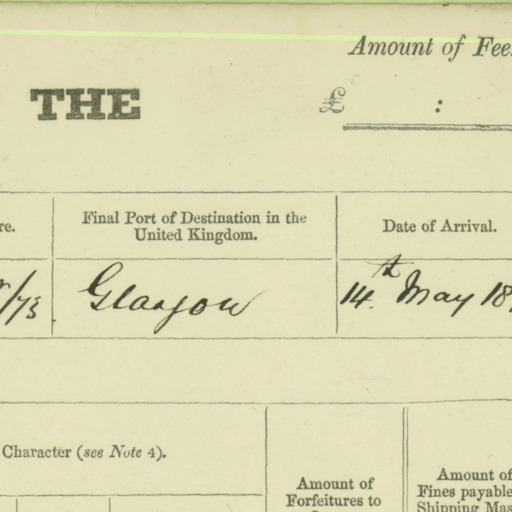 Amount of Fee
THE
£ :
re.
Final Port of Destination in the
United Kingdom.
Date of Arrival.
/73
Glasgow
14th May 18
Character (see Note 4).
Amount of
Forfeitures to
Amount of
Fines payable
Shipping Mas